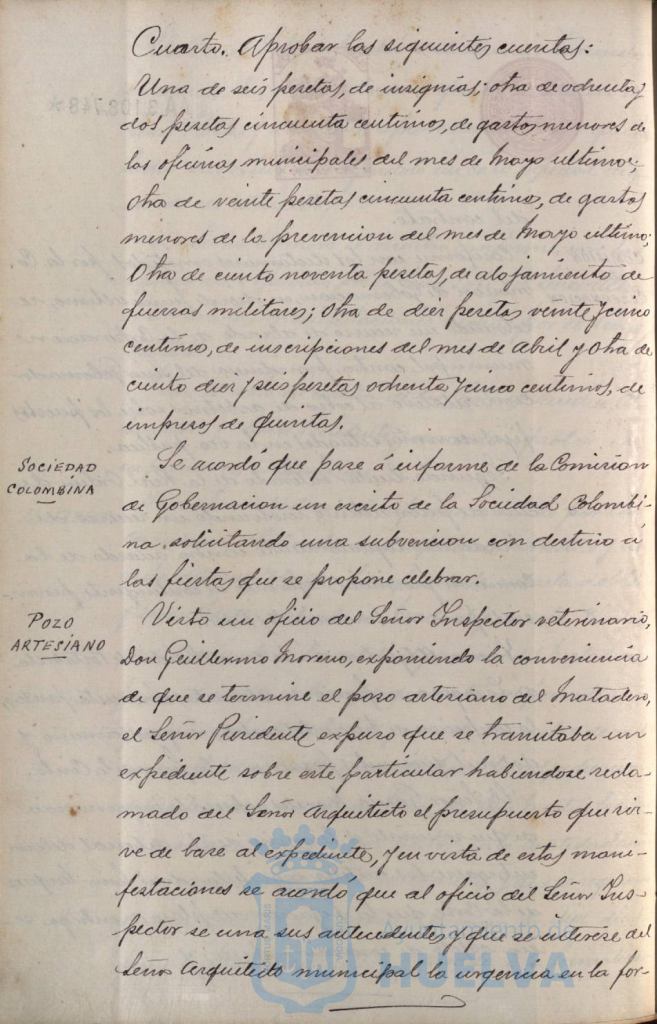 Cuarto. Aprobar las siguientes cuentas:
Una de seis pesetas, de insignias; otra de ochenta y
dos pesetas cincuenta centimos, de gastos menores de
las oficinas municipales del mes de Mayo ultimo;
Otra de veinte pesetas cincuenta centimos, de gastos
menores de la prevencion del mes de Mayo ultimo;
Otra de ciento noventa pesetas, de alojamiento de
fuerzas militares; otra de diez pesetas veinte y cinco
centimos, de inscripciones del mes de Abril y otra de
ciento diez y seis pesetas ochenta y cinco centimos, de
impresos de quintas.
SOCIEDAD
COLOMBINA
Se acordó que pase á informe de la Comision
de Gobernacion un escrito de la Sociedad Colombi-
na solicitando una subvencion con destino á
las fiestas que se propone celebrar.
POZO
ARTESIANO
Visto un oficio del Señor Inspector veterinario,
Don Guillermo Moreno, exponiendo la conveniencia
de que se termine el pozo artesiano del Matadero,
el Señor Presidente expuso que se tramitaba un
expediente sobre este particular habiendose recla-
mado del Señor Arquitecto el presupuesto que sir-
ve de base al expediente, y en vista de estas mani-
festaciones se acordó que al oficio del Señor Ins-
pector se una sus antecedentes y que se interese del
Señor Arquitecto municipal la urgencia en la for-
Ayuntamiento de
HUELVA